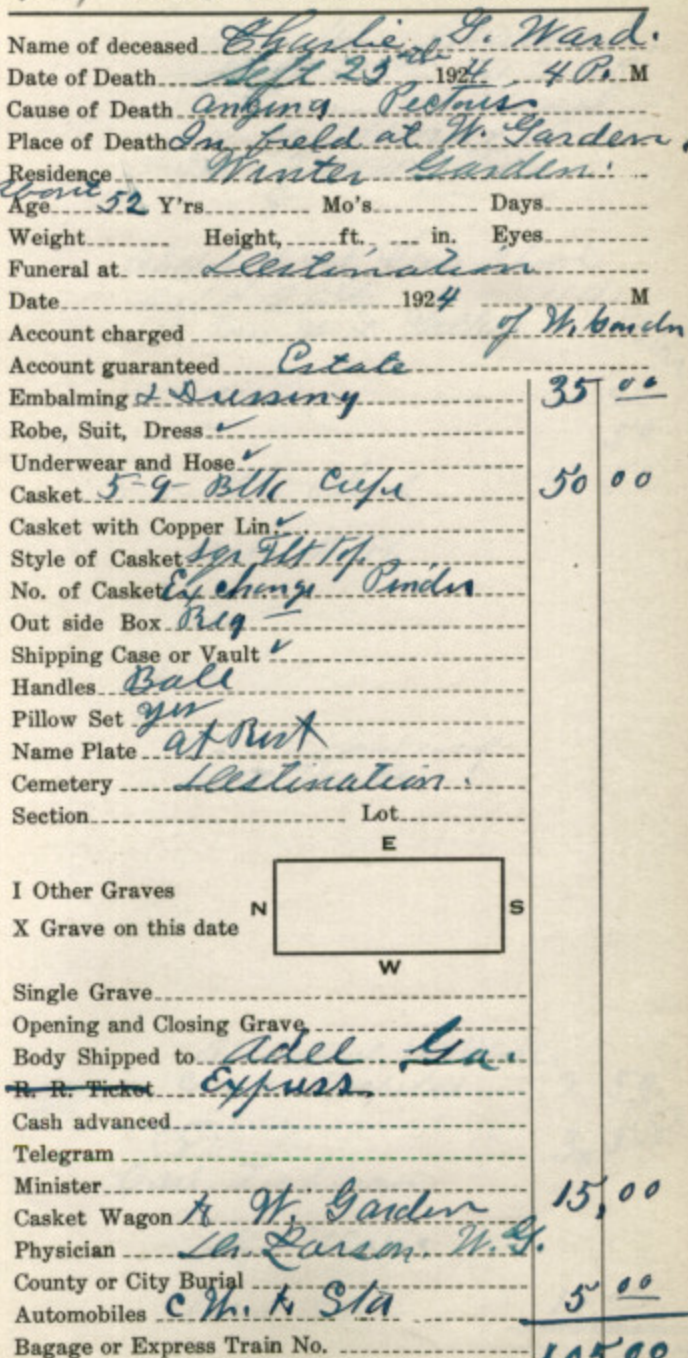 Name of deceased Charlie G. Ward.
Date of Death Sept 25th 1924 4 P. M
Cause of Death angina Pectoris
Place of Death In field at W. Garden.
Residence Winter Garden.
about
Age 52 Y'rs Mo's Days
Weight Height, ft. in. Eyes
Funeral at Destination
Date 1924 M
Account charged of W. Garden
Account guaranteed Estate
Embalming & Dressing 35 00
Robe, Suit, Dress ✓
Underwear and Hose ✓
Casket 5-9 Blk Crepe 50 00
Casket with Copper Lin. ✓
Style of Casket Sqr Flt Top
No. of Casket Exchange
Out side Box Reg
Shipping Case or Vault ✓
Handles Ball
Pillow Set yes
Name Plate at Rest
Cemetery Destination.
Section Lot
E
I Other Graves
N S
X Grave on this date
W
Single Grave
Opening and Closing Grave
Body Shipped to Adel Ga.
R. R. Ticket Express
Cash advanced
Telegram
Minister
Casket Wagon to W. Garden 15,00
Physician Dr. Larson. W. G.
County or City Burial
Automobiles to Sta 5 00
Bagage or Express Train No. 105 00